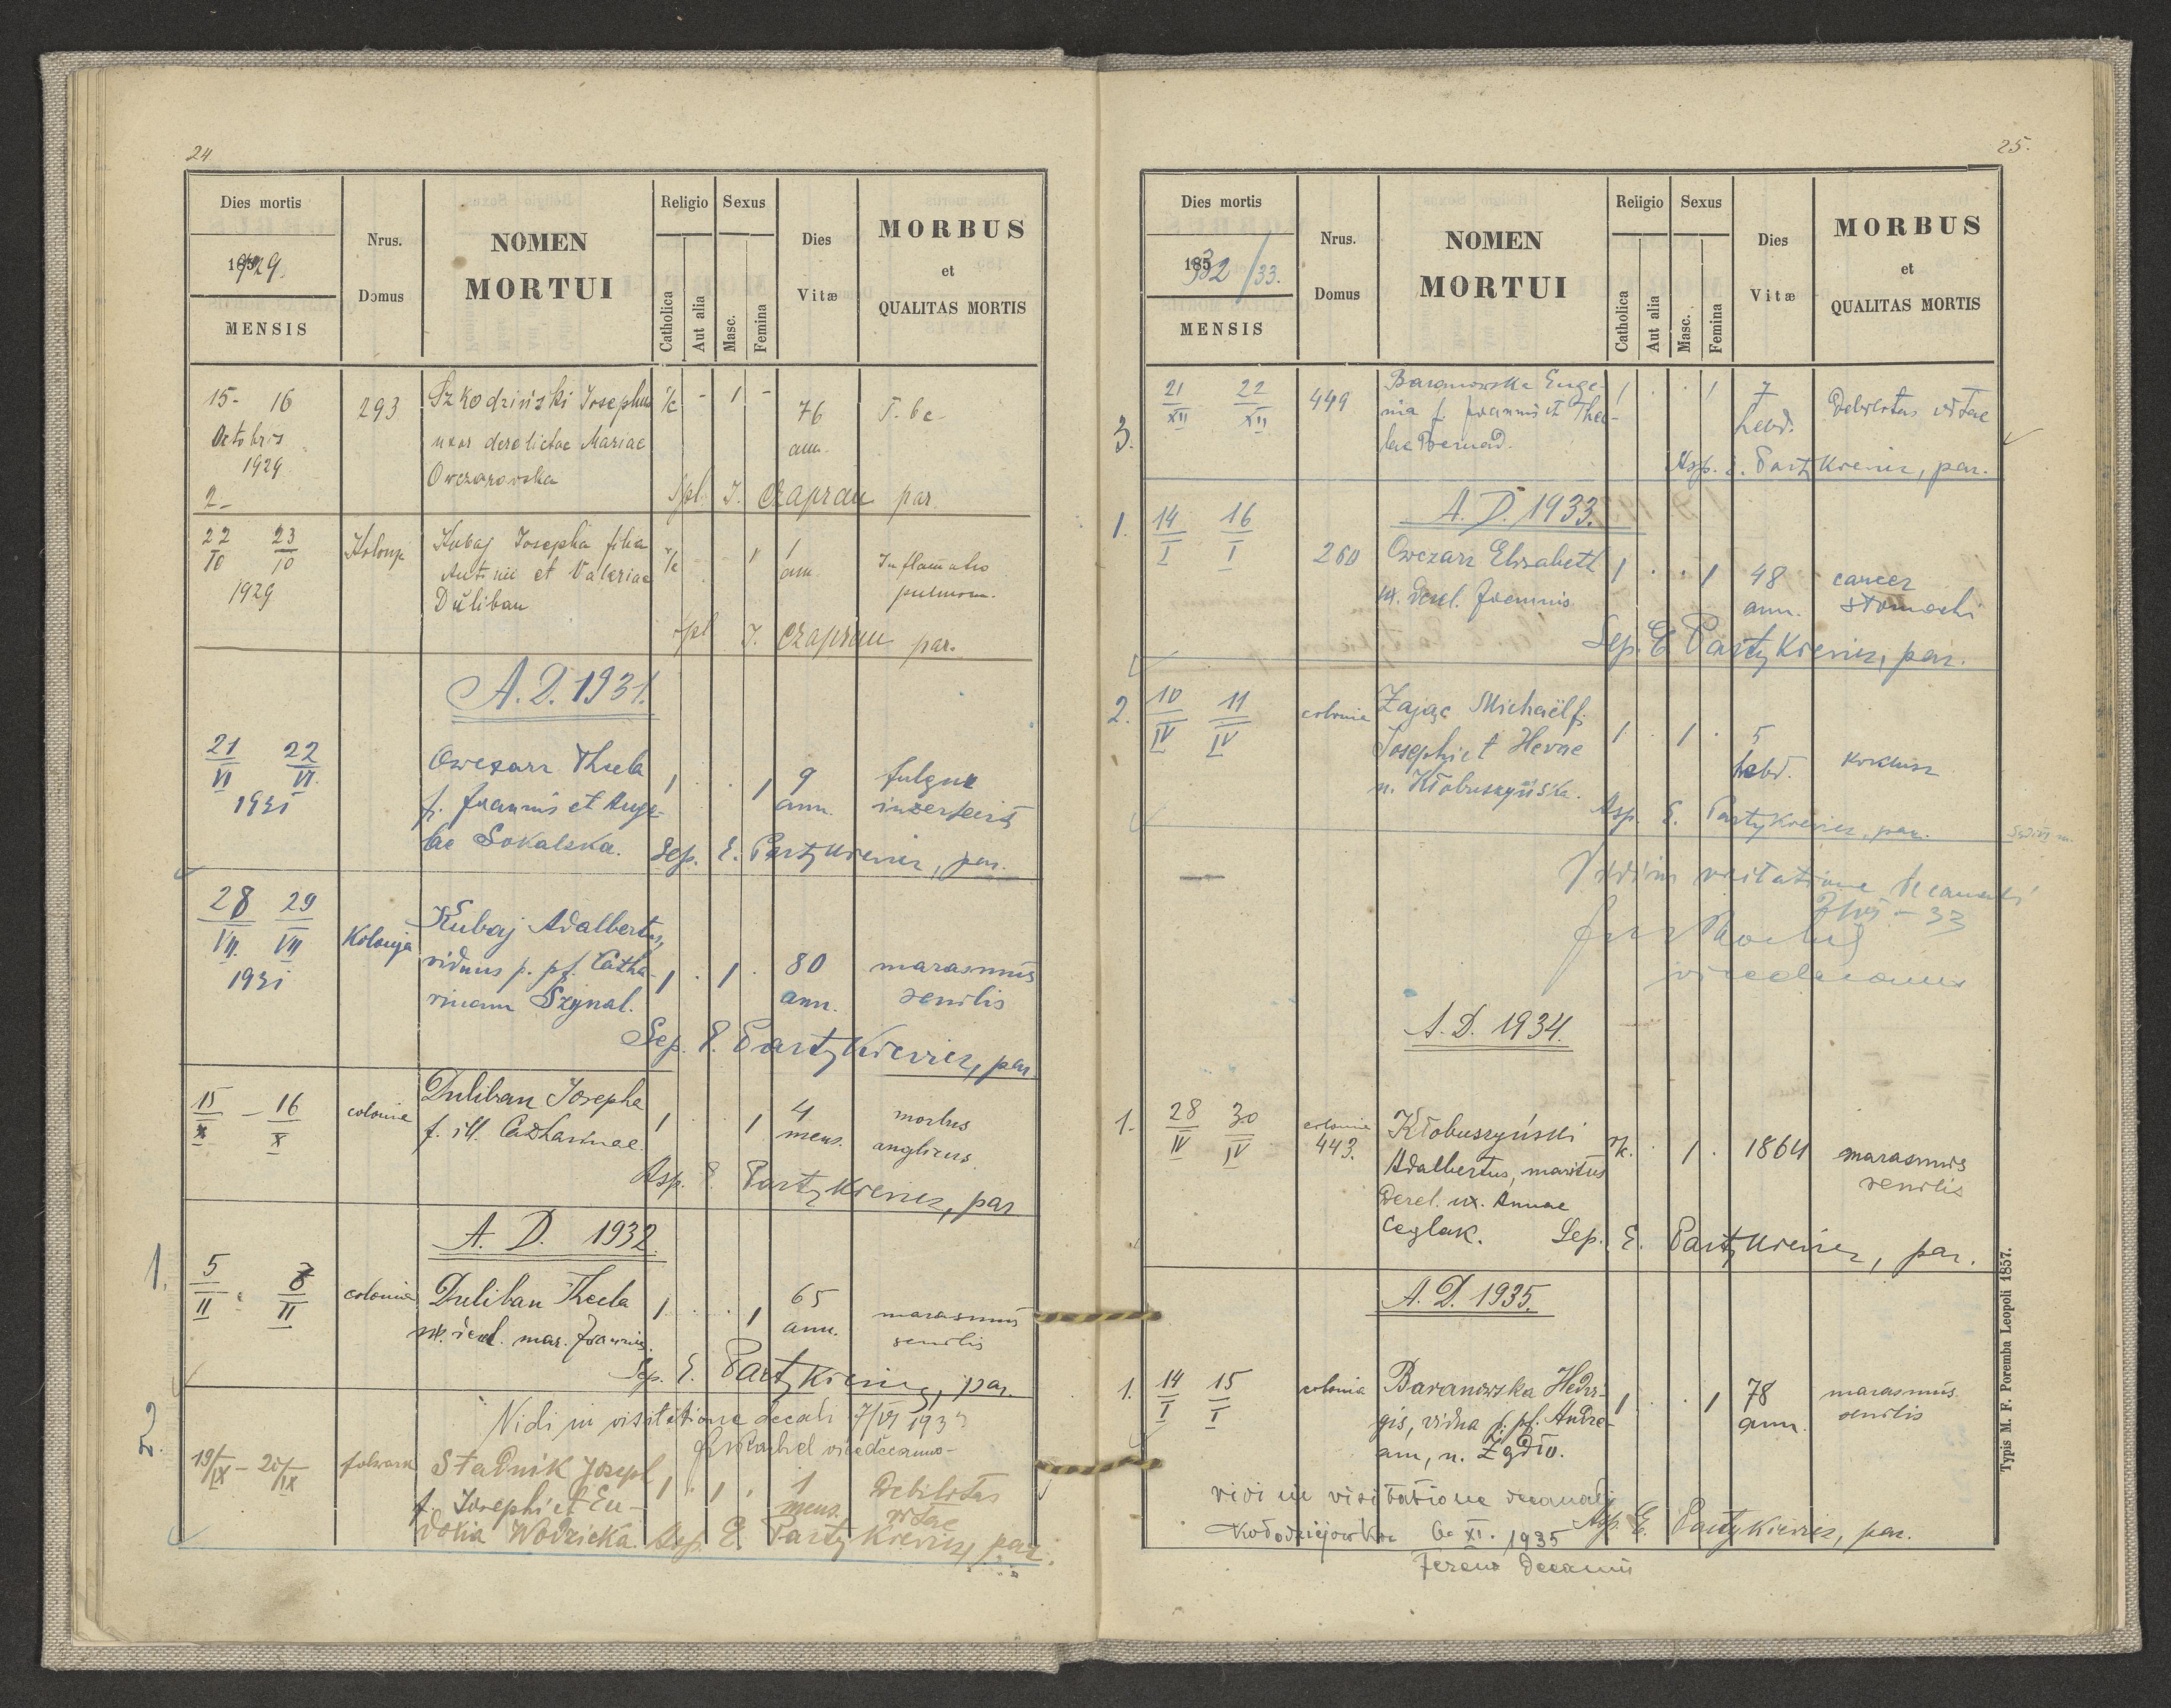 24
Dies mortis
1929.
MENSIS
Nrus.
Domus
NOMEN
MORTUI
Religio
Catholica
Aut alia
Sexus
Masc.
Femina
Dies
Vitæ
MORBUS
et
QUALITAS MORTIS
15- 16 293 Szkodziński Josephus r/c - 1 - 76 T. b c
Octobris uxor derelictae Mariae ann.
1929 Owczarowska
2- Spl. J. Czapran par
22/10 23/10 Kolonja Kubaj Josepha filia r/c 1 1 Inflamatio
Antonii et Valeriae ann pulmon.
1929 Duliban
Spl J. Czapran par.
A. D. 1931.
21/VI 22/VI. Owczarz Thecla 1 . . 1 9 fulgur
1931 f. Joannis et Ange- ann. interfecit
lae Sokalska. Sep. E. Partykiewicz, par.
28/VII. 29/VII Kolonja Kubaj Adalbertus,
viduus p. pf. Catha- 1 . 1 . 80 marasmus
1931 rinam Szynal. ann. senilis
Sep. E. Partykiewicz, par.
15/X - 16/X colonia Duliban Josepha 1 1 4 morbus
f. ill. Catharinae. mens. anglicus.
Asp. E. Partykiewicz, par
A. D. 1932.
1. 5/II . 8/II colonia Duliban Thecla 1. . . 1 65 marasmus
ux. derel. mar. Joannis. ann. senilis
Sep. E. Partykiewicz, par.
Vidi in visitatione decali 7/VI 193
vicedecanus
2. 19/IX - 20/IX folwark Stadnik Joseph 1 . 1 . 1 Debilitas
f. Josephi et Eu- mens. vitae
dokia Wodzicka. Asp. E. Partykiewicz, par.
25.
Dies mortis
185 932/33.
MENSIS
Nrus.
Domus
NOMEN
MORTUI
Religio
Catholica
Aut alia
Sexus
Masc.
Femina
Dies
Vitæ
MORBUS
et
QUALITAS MORTIS
3. 21/XII 22/XII 449 Baranowska Euge- 1 . . 1 7 Debilitas vitae
nia f. Joannis et The- hebd.
clae
Asp. E. Partykiewicz, par.
A. D. 1933.
1. 14/I 16/I 260 Owczarz Elisabeth 1 . . 1 48 cancer
ux. derel. Joannis ann. stomachi
Sep. E. Partykiewicz, par.
2. 10/IV 11/IV colonia Zając Michaël f. 1 . 1 . 5 koklusz
Josephi et Hevae hebd.
n. Kłobuszyńska.
Asp. E. Partykiewicz, par.
Vidi in visitatione decanali
7/VI - 33
vicedecanus
A. D. 1934.
1. 28/IV 30/IV colonia 443. Kłobuszyński r/k. . 1 . 1864 marasmus
Adalbertus, maritus senilis
derel. ux. Annae
Ceglak. Sep. E. Partykiewicz, par.
A. D. 1935.
1. 14/I 15/I colonia Baranowska Hedvi- 1 . . 1 78 marasmus
gis, vidua p. pf. Andre- ann. senilis
am, n. Żądło.
vidi in visitatione decanali Asp. E. Partykiewicz, par.
Kołodziejówka 6. XI. 1935
Ferens Decanus
Typis M. F. Poremba Leopoli 1857.